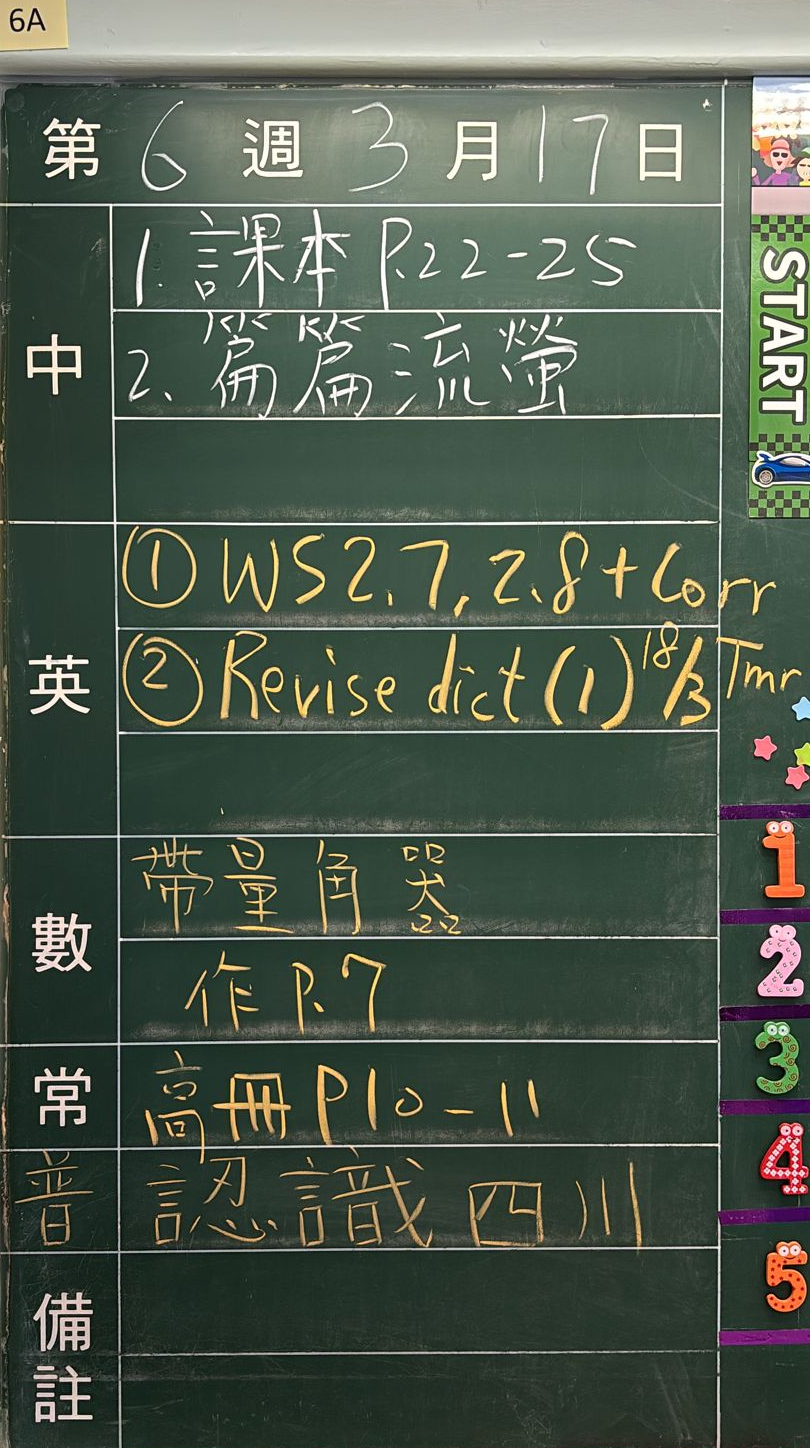 6A
第 6 週 3 月 17 日
中
1. 課本 P.22-25
2. 篇篇流螢
英
① WS 2.7, 2.8 + Corr
② Revise dict (1) 18/3 Tmr
數
帶量角器
作 P.7
常
高冊 P10-11
普
認識四川
備註
START
1
2
3
4
5